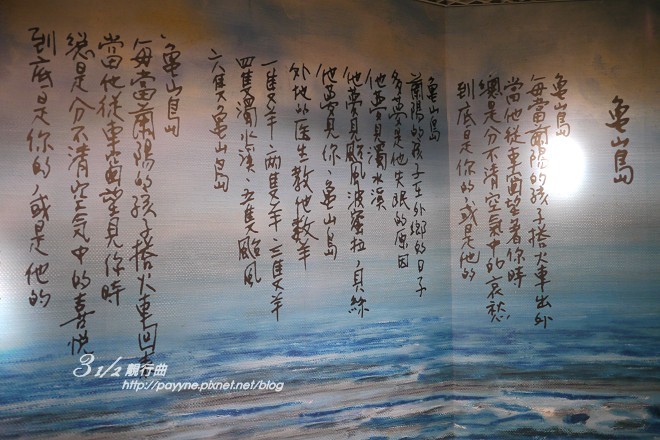 龜山島
龜山島
每當蘭陽的孩子搭火車出外
當他從車窗望著你時
總是分不清空氣中的哀愁
到底是你的，或是他的
龜山島
蘭陽的孩子在外鄉的日子
多夢是他失眠的原因
他夢見濁水溪
他夢見颱風波蜜拉，貝絲
他夢見你，龜山島
外地的医生教他數羊
一隻羊，兩隻羊，三隻羊
四隻濁水溪，五隻颱風
六隻龜山島
龜山島
每當蘭陽的孩子搭火車回來
當他從車窗望見你時
總是分不清空氣中的喜悅
到底是你的，或是他的
3 1/2 靚行曲
http://payyne.pixnet.net/blog